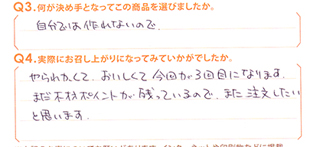 Q3.何が決め手となってこの商品を選びましたか。
自分では作れないので
Q4.実際にお召し上がりになってみていかがでしたか。
やわらかくて、おいしくて 今回が3回目になります。
まだ ポイントが残っているので、また注文したい
と思います。